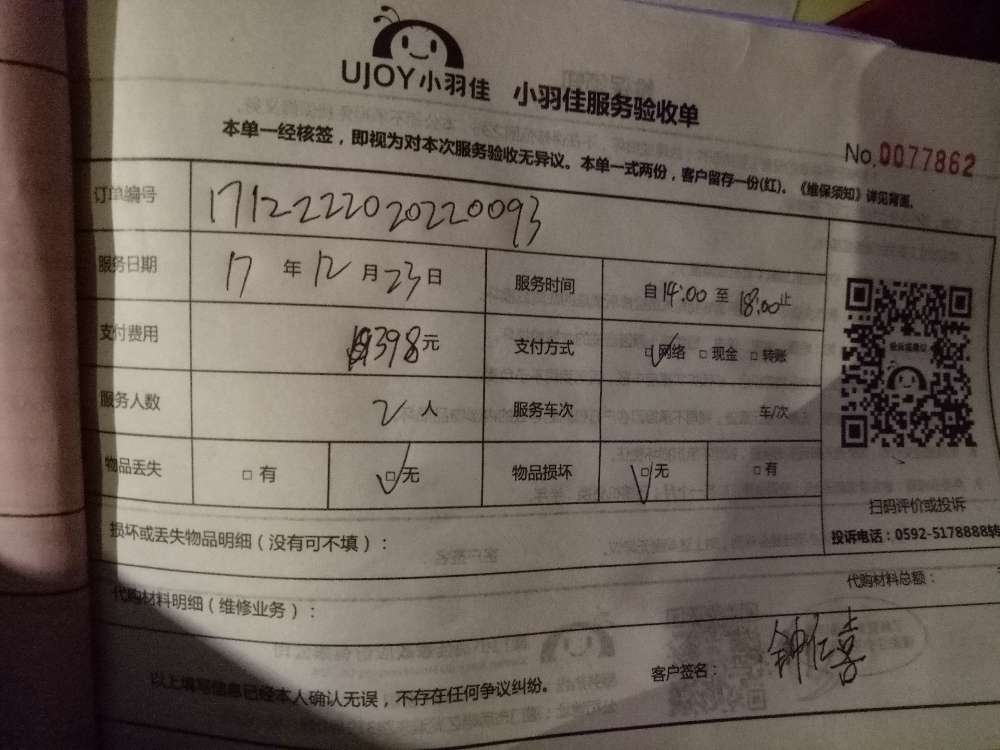 UJOY小羽佳 小羽佳服务验收单
本单一经核签，即视为对本次服务验收无异议。本单一式两份，客户留存一份(红)。《维保须知》详见背面。
No.0077862
订单编号 1712222020220093
服务日期 17 年 12 月 23 日 服务时间 自 14:00 至 18:00 止
支付费用 398 元 支付方式 ☑网络 □现金 □转账
服务人数 2 人 服务车次 车/次
物品丢失 □有 ☑无 物品损坏 ☑无 □有
扫码评价或投诉
投诉电话：0592-5178888转
损坏或丢失物品明细（没有可不填）：
代购材料明细（维修业务）： 代购材料总额：
以上填写信息已经本人确认无误，不存在任何争议纠纷。 客户签名： 钟仁喜